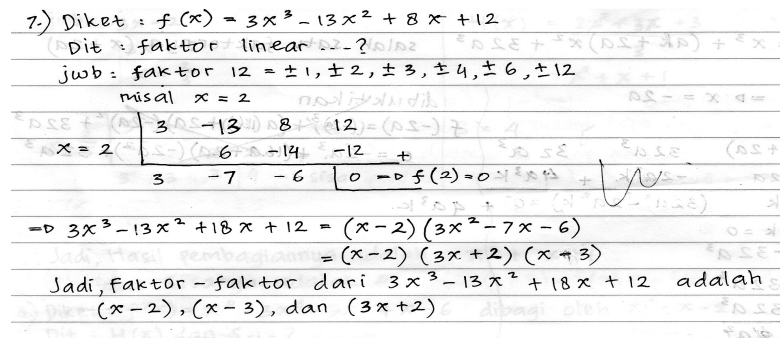 7.) Diket : f(x) = 3x³ - 13x² + 8x + 12
Dit : faktor linear ---?
jwb : faktor 12 = ±1, ±2, ±3, ±4, ±6, ±12
misal x = 2
3 -13 8 12
x = 2 6 -14 -12 +
3 -7 -6 0 => f(2) = 0
=> 3x³ - 13x² + 18x + 12 = (x-2) (3x² - 7x - 6)
= (x-2) (3x+2) (x-3)
Jadi, Faktor-faktor dari 3x³ - 13x² + 18x + 12 adalah
(x-2), (x-3), dan (3x+2)